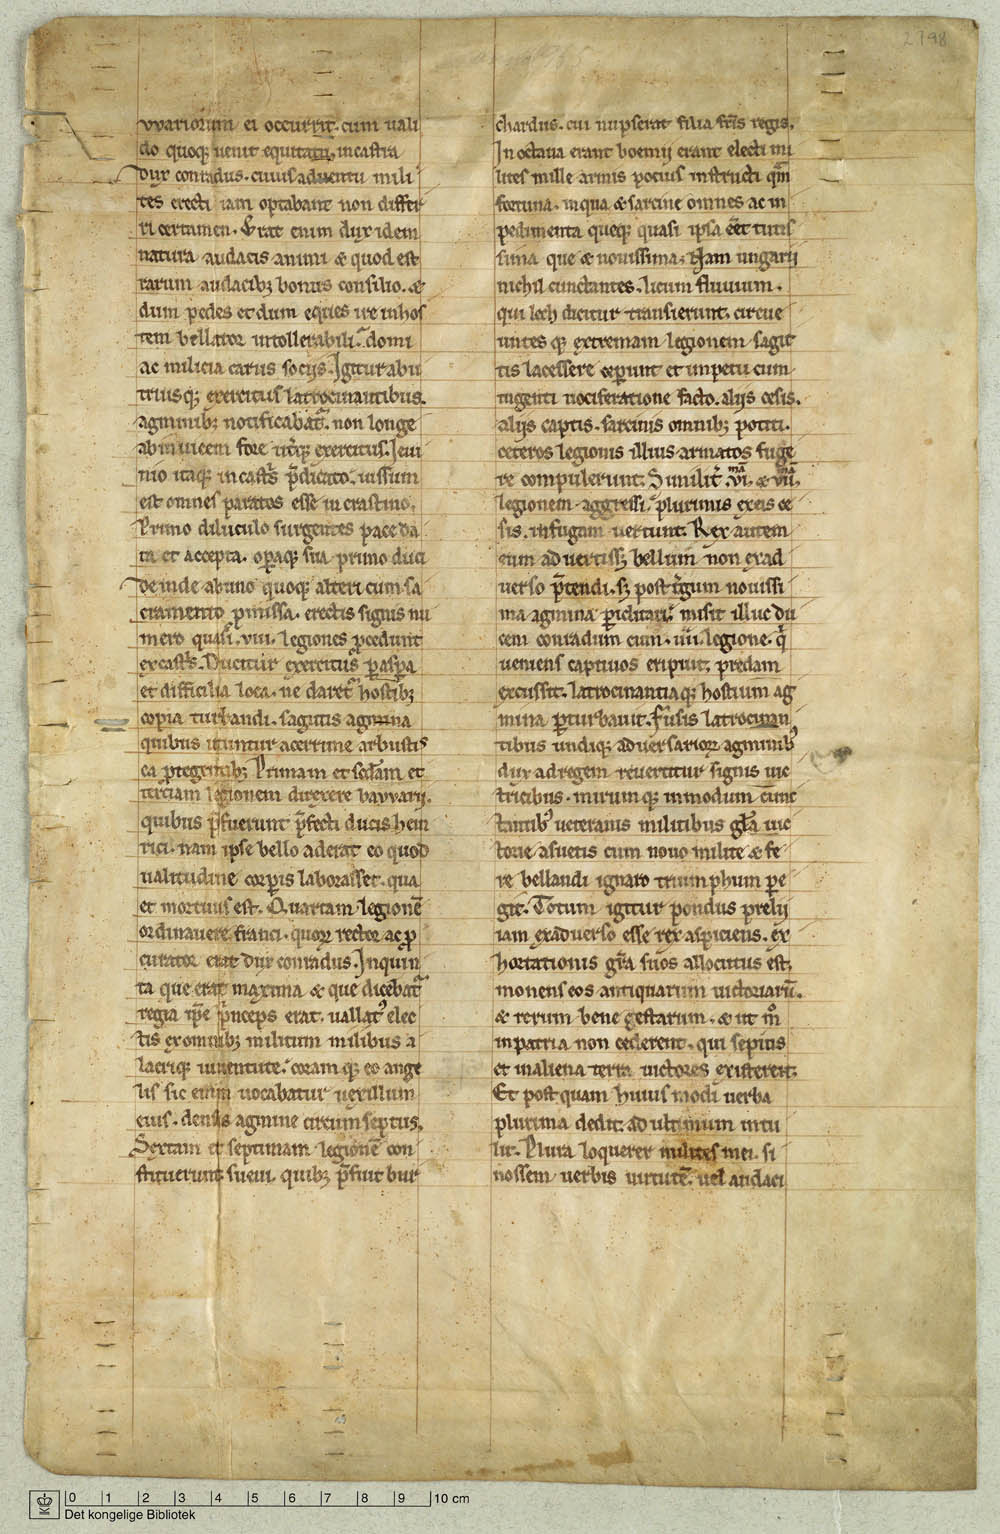 2798
vvariorum ei occurrit. cum uali
do quoqꝫ uenit equitatu, in castra
dux conradus. cuius aduentu mili
tes erecti iam optabant non differ
ri certamen. Erat enim dux idem
natura audacis animi & quod est
rarum audacibꝫ bonus consilio. &
dum pedes et dum eques iret in hos
tem bellator intollerabilis. domi
ac milicia carus socijs. Igitur ab u
triusqꝫ exercitus latrocinantibus.
agminibꝫ notificabat᷑. non longe
ab inuicem fore ut᷑qꝫ exercitus. Ieiu
nio itaqꝫ in cast᷑s p̄dicato. iussum
est omnes paratos esse in crastino.
Primo diluculo surgentes pace da
ta et accepta. oꝑaqꝫ sua primo duci
deinde ab uno quoqꝫ alteri cum sa
cramento ꝓmissa. erectis signis nu
mero quasi. viii. legiones ꝓcedunt
ex cast᷑s. Ducitur exercitus ꝑ aspa
et difficilia loca. ne daret᷑ hostibꝫ
copia turbandi. sagittis agmina
quibus utuntur acerrime arbustis
ea ꝓtegentibꝫ. Primam et sc̄dam et
terciam legionem direxere bavvarij.
quibus p̄fuerunt p̄fecti ducis hein
rici. nam ipse bello aderat eo quod
ualitudine corꝑis laborasset. qua
et mortuus est. Quartam legionē
ordinauere franci. quoꝝ rector ac ꝓ
curator erat dux conradus. In quin
ta que erat maxima & que dicebat᷑
regia ip̄e princeps erat. uallatꝰ elec
tis ex omnibꝫ militum milibus a
lacriqꝫ iuuentute. coram qꝫ eo ange
lus sic enim uocabatur uexillum
eius. densis agmine circum septus.
Sextam et septimam legionē con
stituerunt sueui. quibꝫ p̄fuit bur
chardus. cui nupserat filia fr̄is regis.
In octaua erant boemij erant electi mi
lites mille armis pocius instructi qm̄
fortuna. in qua & sarcine omnes ac in
pedimenta queqꝫ quasi ipsa eēt tutis
sima que & nouissima. Nam ungarij
nichil cunctantes. licum fluuium.
qui lech dicitur transierunt. circue
untes qꝫ extremam legionem sagit
tis lacessere ceperunt et impetu cum
ingenti uociferatione facto. alijs cesis.
alijs captis. sarcinis omnibꝫ potiti.
ceteros legionis illius armatos fuge
re compulerunt. Similit᷑. vi.ᵐᵃ & vii.ᵐᵃ
legionem aggressi. plurimis ex eis ce
sis. in fugam uertunt. Rex autem
cum aduertissꝫ bellum non ex ad
uerso p̄tendi. sꝫ post t᷑gum nouissi
ma agmina ꝑiclitari. misit illuc du
cem conradum cum. iiii. legione. qͥ
ueniens captiuos eripuit. predam
excussit. latrocinantiaqꝫ hostium ag
mina ꝑturbauit. Fusis latrocinan
tibus undiqꝫ aduersarioꝝ agminibꝰ
dux ad regem reuertitur signis uic
tricibus. mirum qꝫ in modum cunc
tantibꝰ ueteranis militibus gl̄a uic
torie asuetis cum nouo milite & fe
re bellandi ignaro triumphum ꝑe
git. Totum igitur pondus prelij
iam ex aduerso esse rex aspiciens. ex
hortationis gr̄a suos allocutus est,
monens eos antiquarum uictoriarū.
& rerum bene gestarum. & ut mͦ
in patria non cederent. qui sepius
et in aliena terra uictores existerent.
Et post quam huius modi uerba
plurima dedit. ad ultimum intu
lit. Plura loquerer milites mei. si
nossem uerbis uirtutē. uel audaci
0 1 2 3 4 5 6 7 8 9 10 cm
Det kongelige Bibliotek